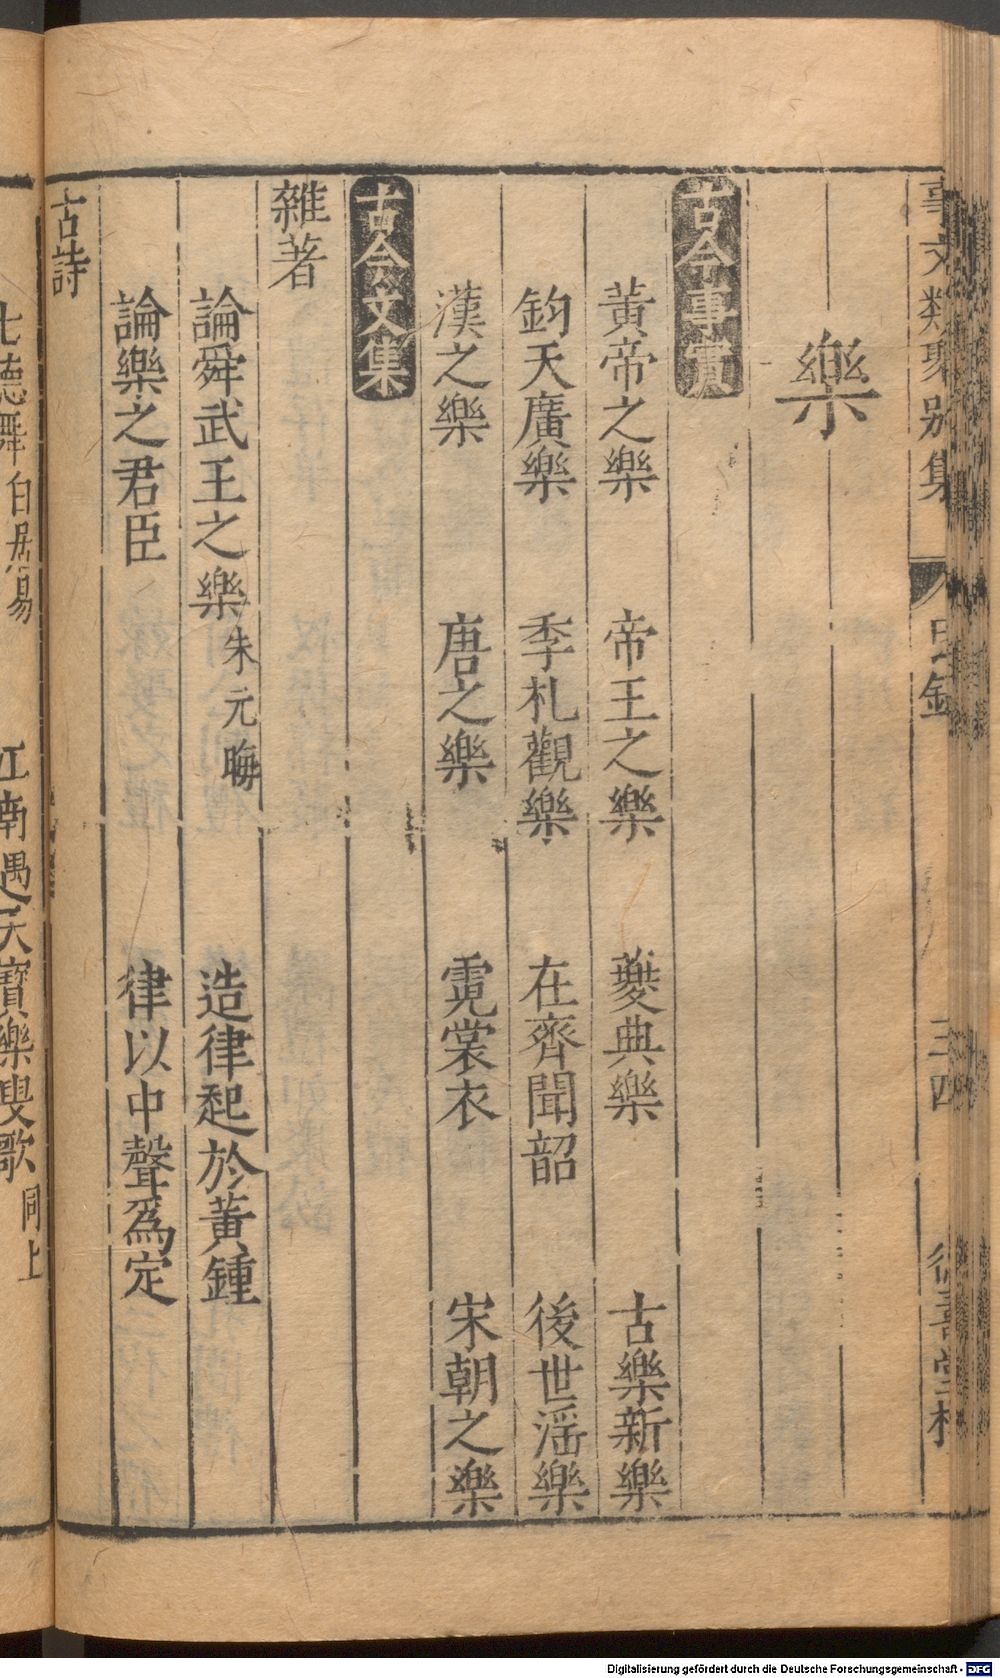 事文類聚別集
目錄
三四
樂
古今事實
黃帝之樂 帝王之樂 夔典樂 古樂新樂
鈞天廣樂 季札觀樂 在齊聞韶 後世滛樂
漢之樂 唐之樂 霓裳衣 宋朝之樂
古今文集
雜著
論舜武王之樂 朱元晦 造律起於黃鍾
論樂之君臣 律以中聲爲定
古詩
七德舞 白居易 江南遇天寶樂叟歌 同上
Digitalisierung gefördert durch die Deutsche Forschungsgemeinschaft - DFG